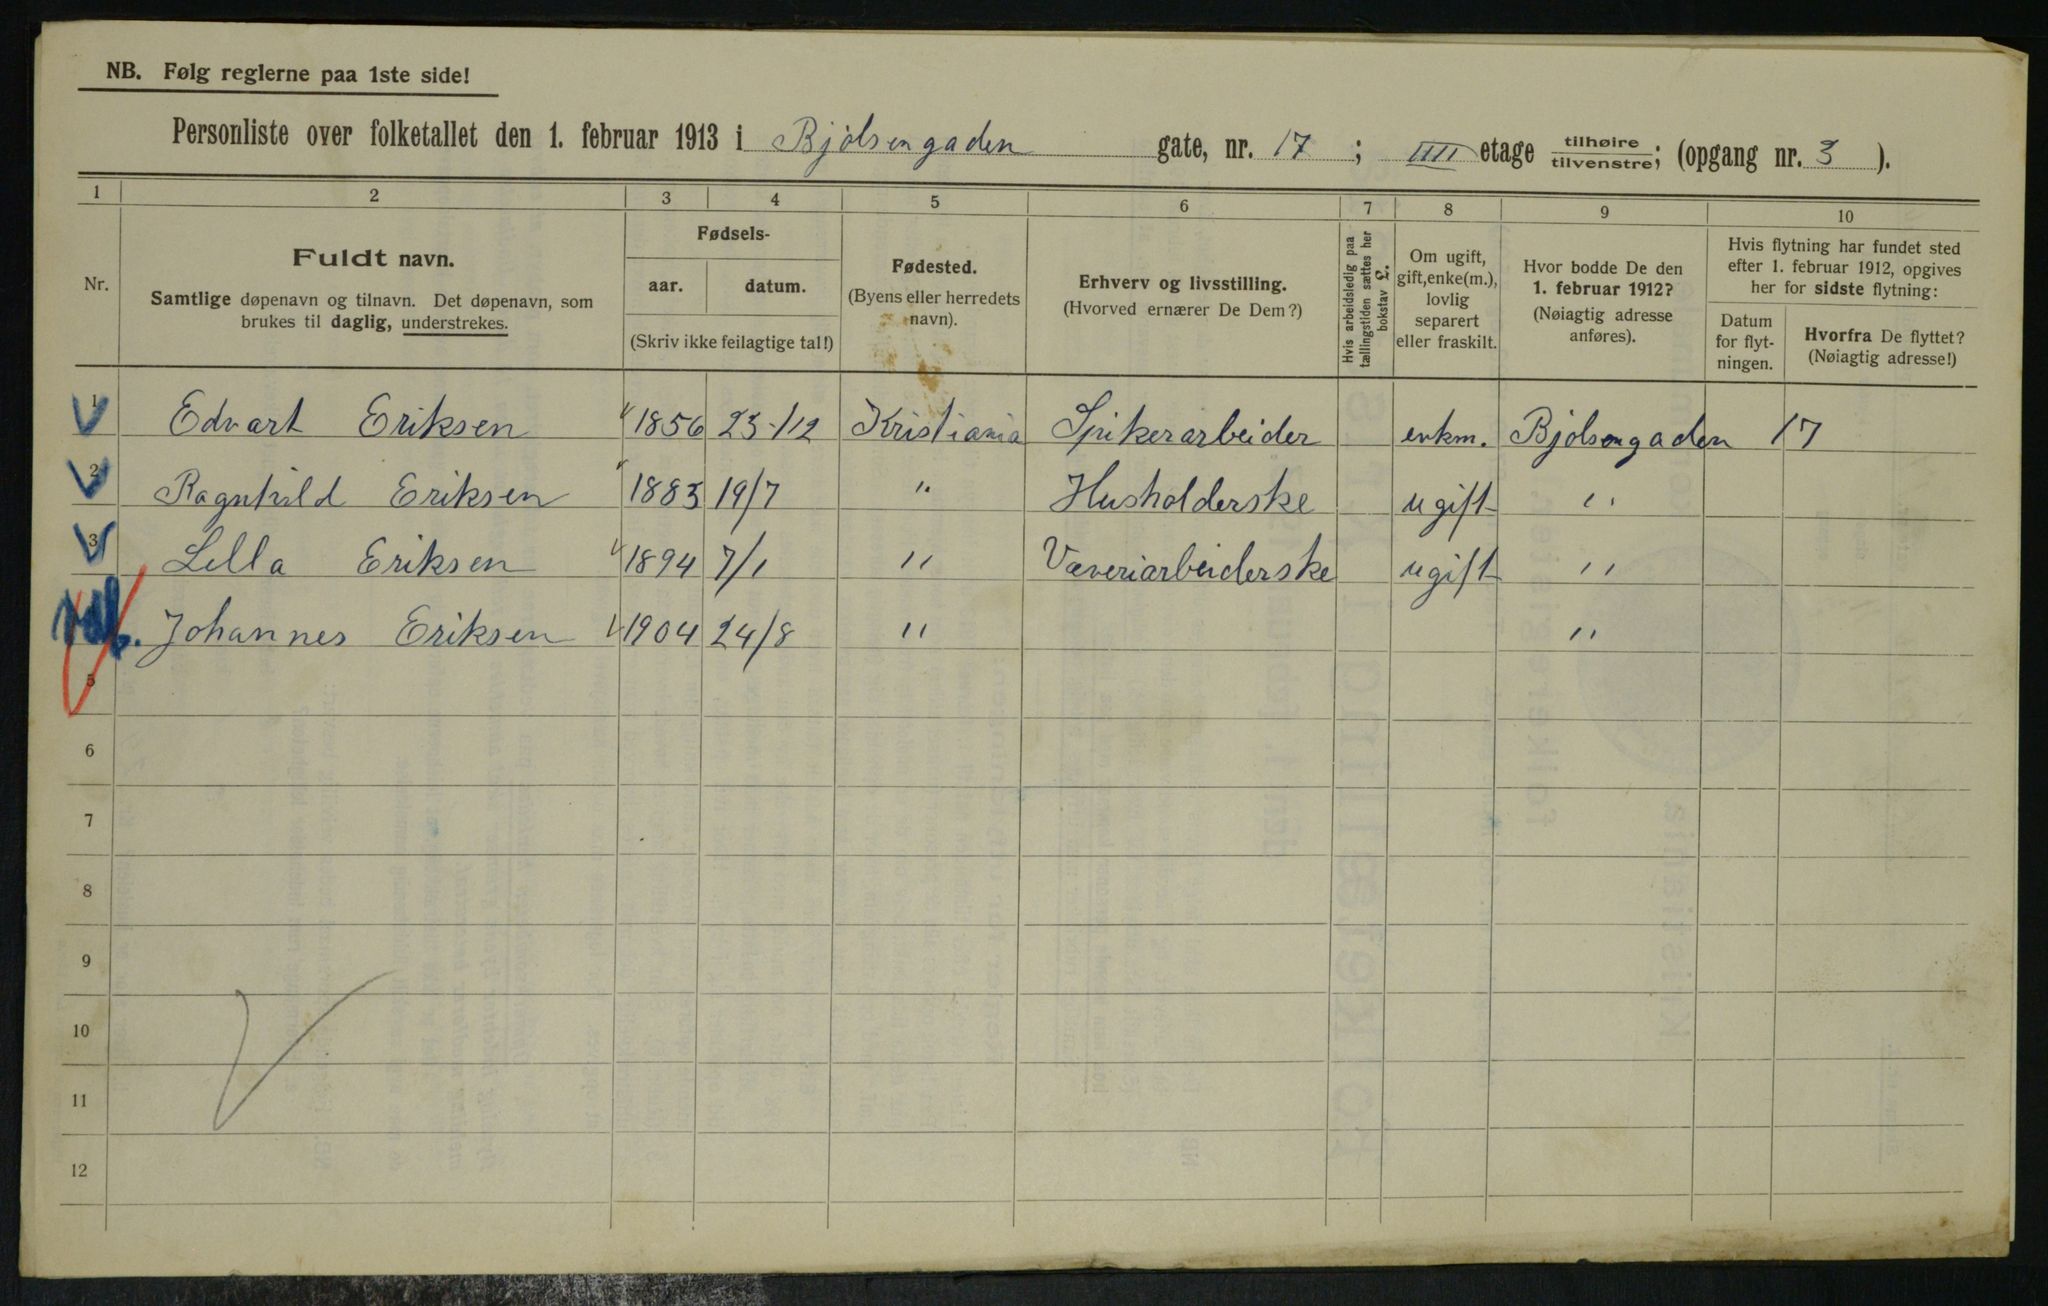 NB. Følg reglerne paa 1ste side!
Personliste over folketallet den 1. februar 1913 i Bjølsengaden gate, nr. 17 ; IIII etage tilhøire/tilvenstre; (opgang nr. 3 ).
1 2 3 4 5 6 7 8 9 10
Nr.
Fuldt navn.
Samtlige døpenavn og tilnavn. Det døpenavn, som
brukes til daglig, understrekes.
Fødsels-
aar. datum.
(Skriv ikke feilagtige tal!)
Fødested.
(Byens eller herredets
navn).
Erhverv og livsstilling.
(Hvorved ernærer De Dem?)
Hvis arbeidsledig paa
tællingstiden sættes her
bokstav £.
Om ugift,
gift, enke(m.),
lovlig
separert
eller fraskilt.
Hvor bodde De den
1. februar 1912?
(Nøiagtig adresse
anføres).
Hvis flytning har fundet sted
efter 1. februar 1912, opgives
her for sidste flytning:
Datum
for flyt-
ningen.
Hvorfra De flyttet?
(Nøiagtig adresse!)
1 Edvart Eriksen 1856 23/12 Kristiania Spikerarbeider enkm. Bjølsengaden 17
2 Ragnhild Eriksen 1883 19/7 " Husholderske ugift "
3 Lella Eriksen 1894 7/1 " Væveriarbeiderske ugift "
Johannes Eriksen 1904 24/8 " "
5
6
7
8
9
10
11
12